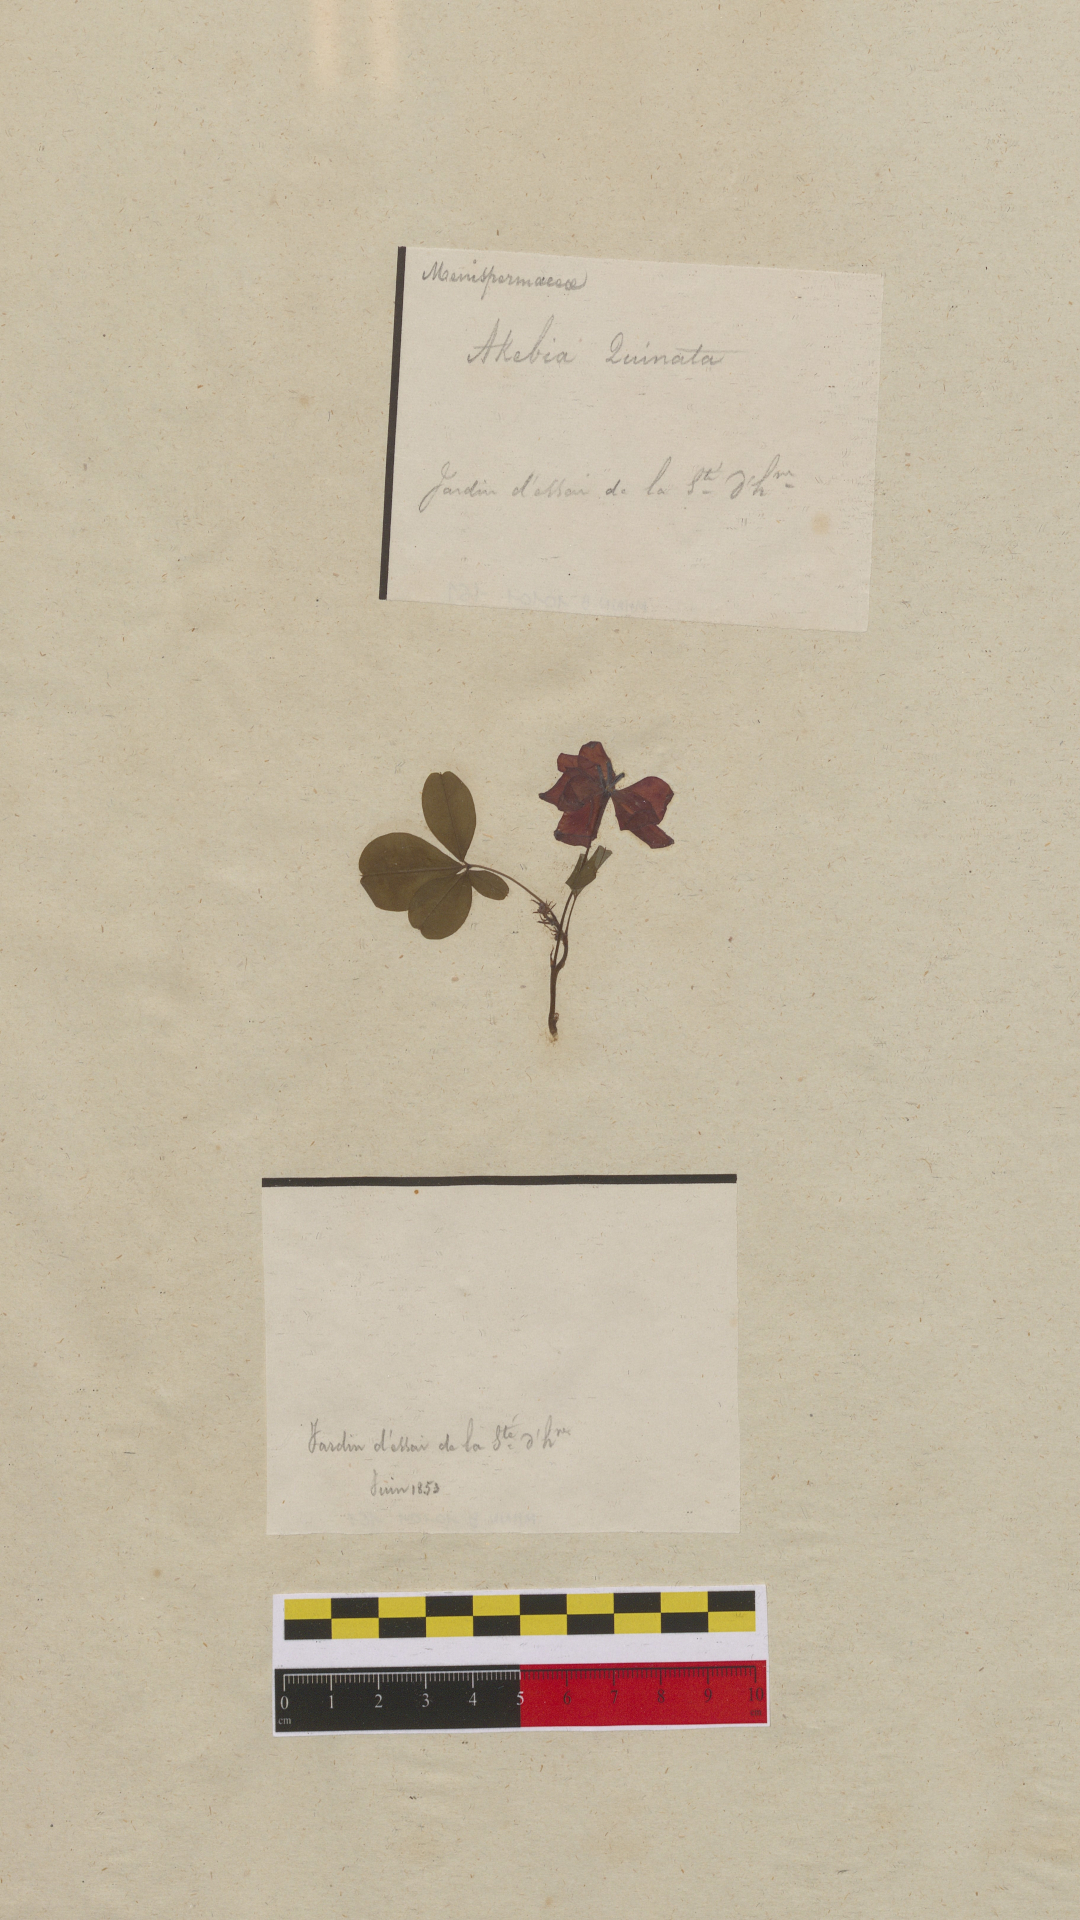 Menispermaceae
Akebia Quinata
Jardin d'essai de la Sté d'hre
Jardin d'essai de la Sté d'hre
Juin 1853
0 1 2 3 4 5 6 7 8 9 10
cm cm